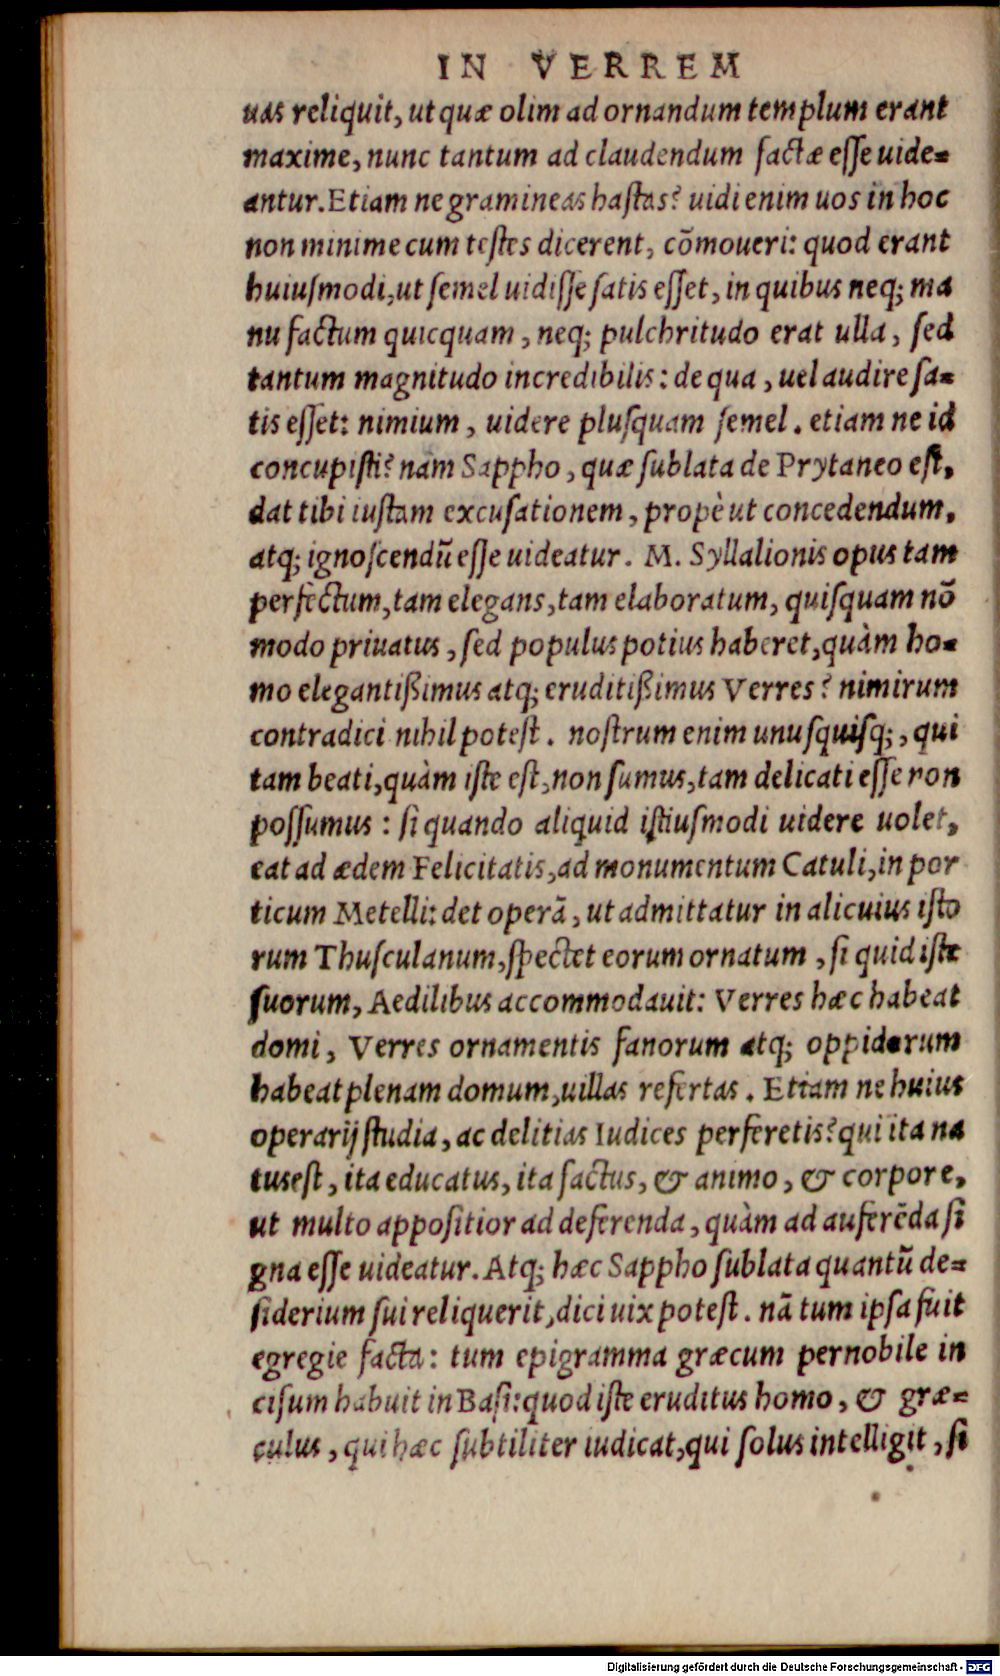 IN VERREM
uas reliquit, ut quæ olim ad ornandum templum erant
maxime, nunc tantum ad claudendum factæ eſſe uide=
antur. Etiam ne gramineas haſtas? uidi enim uos in hoc
non minime cum teſtes dicerent, cõmoueri: quod erant
huiuſmodi, ut ſemel uidiſſe ſatis eſſet, in quibus neq; ma
nu factum quicquam, neq; pulchritudo erat ulla, ſed
tantum magnitudo incredibilis: de qua, uel audire ſa=
tis eſſet: nimium, uidere pluſquam ſemel. etiam ne id
concupiſti? nam Sappho, quæ ſublata de Prytaneo eſt,
dat tibi iuſtam excuſationem, propè ut concedendum,
atq; ignoſcendũ eſſe uideatur. M. Syllalionis opus tam
perfectum, tam elegans, tam elaboratum, quiſquam nõ
modo priuatus, ſed populus potius haberet, quàm ho=
mo elegantißimus atq; eruditißimus Verres? nimirum
contradici nihil poteſt. noſtrum enim unuſquiſq;, qui
tam beati, quàm iſte eſt, non ſumus, tam delicati eſſe non
poſſumus: ſi quando aliquid iſtiuſmodi uidere uolet,
eat ad ædem Felicitatis, ad monumentum Catuli, in por
ticum Metelli: det operã, ut admittatur in alicuius iſto
rum Thuſculanum, ſpectet eorum ornatum, ſi quid iſte
ſuorum, Aedilibus accommodauit: Verres hæc habeat
domi, Verres ornamentis fanorum atq; oppidorum
habeat plenam domum, uillas refertas. Etiam ne huius
operarij ſtudia, ac delitias Iudices perferetis? qui ita na
tus eſt, ita educatus, ita factus, & animo, & corpore,
ut multo appoſitior ad deferenda, quàm ad auferẽda ſi
gna eſſe uideatur. Atq; hæc Sappho ſublata quantũ de=
ſiderium ſui reliquerit, dici uix poteſt. nã tum ipſa fuit
egregie facta: tum epigramma græcum pernobile in
ciſum habuit in Baſi: quod iſte eruditus homo, & græ=
culus, qui hæc ſubtiliter iudicat, qui ſolus intelligit, ſi
Digitalisierung gefördert durch die Deutsche Forschungsgemeinschaft - DFG